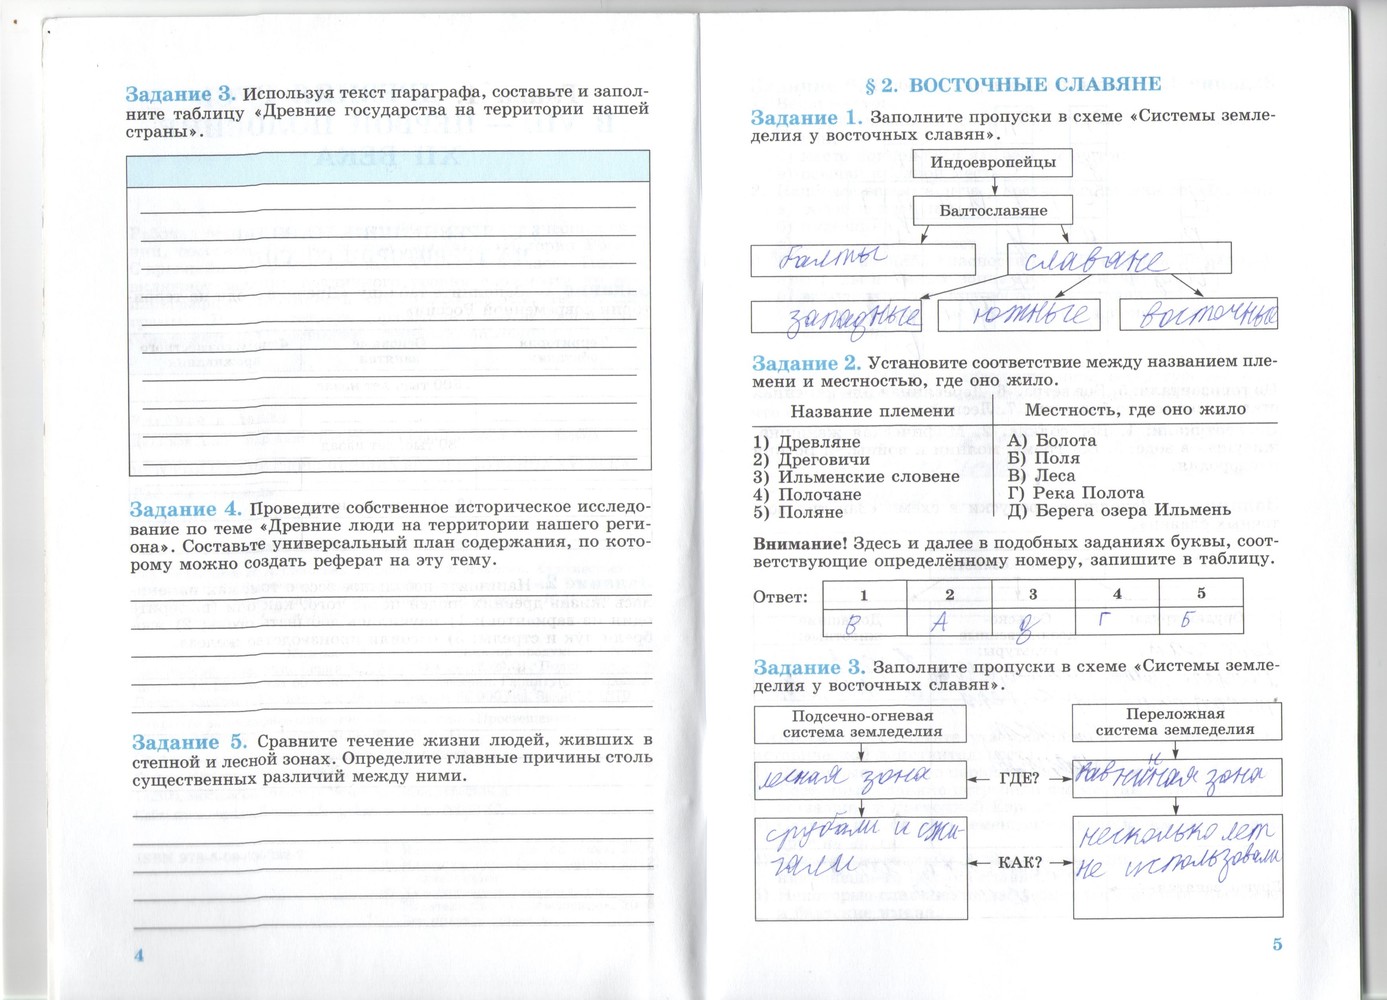 Задание 3. Используя текст параграфа, составьте и запол-
ните таблицу «Древние государства на территории нашей
страны».
Задание 4. Проведите собственное историческое исследо-
вание по теме «Древние люди на территории нашего реги-
она». Составьте универсальный план содержания, по кото-
рому можно создать реферат на эту тему.
Задание 5. Сравните течение жизни людей, живших в
степной и лесной зонах. Определите главные причины столь
существенных различий между ними.
4
§ 2. ВОСТОЧНЫЕ СЛАВЯНЕ
Задание 1. Заполните пропуски в схеме «Системы земле-
делия у восточных славян».
Индоевропейцы
Балтославяне
балты
славяне
западные
южные
восточные
Задание 2. Установите соответствие между названием пле-
мени и местностью, где оно жило.
Название племени Местность, где оно жило
1) Древляне А) Болота
2) Дреговичи Б) Поля
3) Ильменские словене В) Леса
4) Полочане Г) Река Полота
5) Поляне Д) Берега озера Ильмень
Внимание! Здесь и далее в подобных заданиях буквы, соот-
ветствующие определённому номеру, запишите в таблицу.
Ответ: 1 2 3 4 5
В А д Г Б
Задание 3. Заполните пропуски в схеме «Системы земле-
делия у восточных славян».
Подсечно-огневая
система земледелия
Переложная
система земледелия
лесная зона
ГДЕ?
равнинная зона
срубали и сжи-
гали
КАК?
несколько лет
не использовали
5